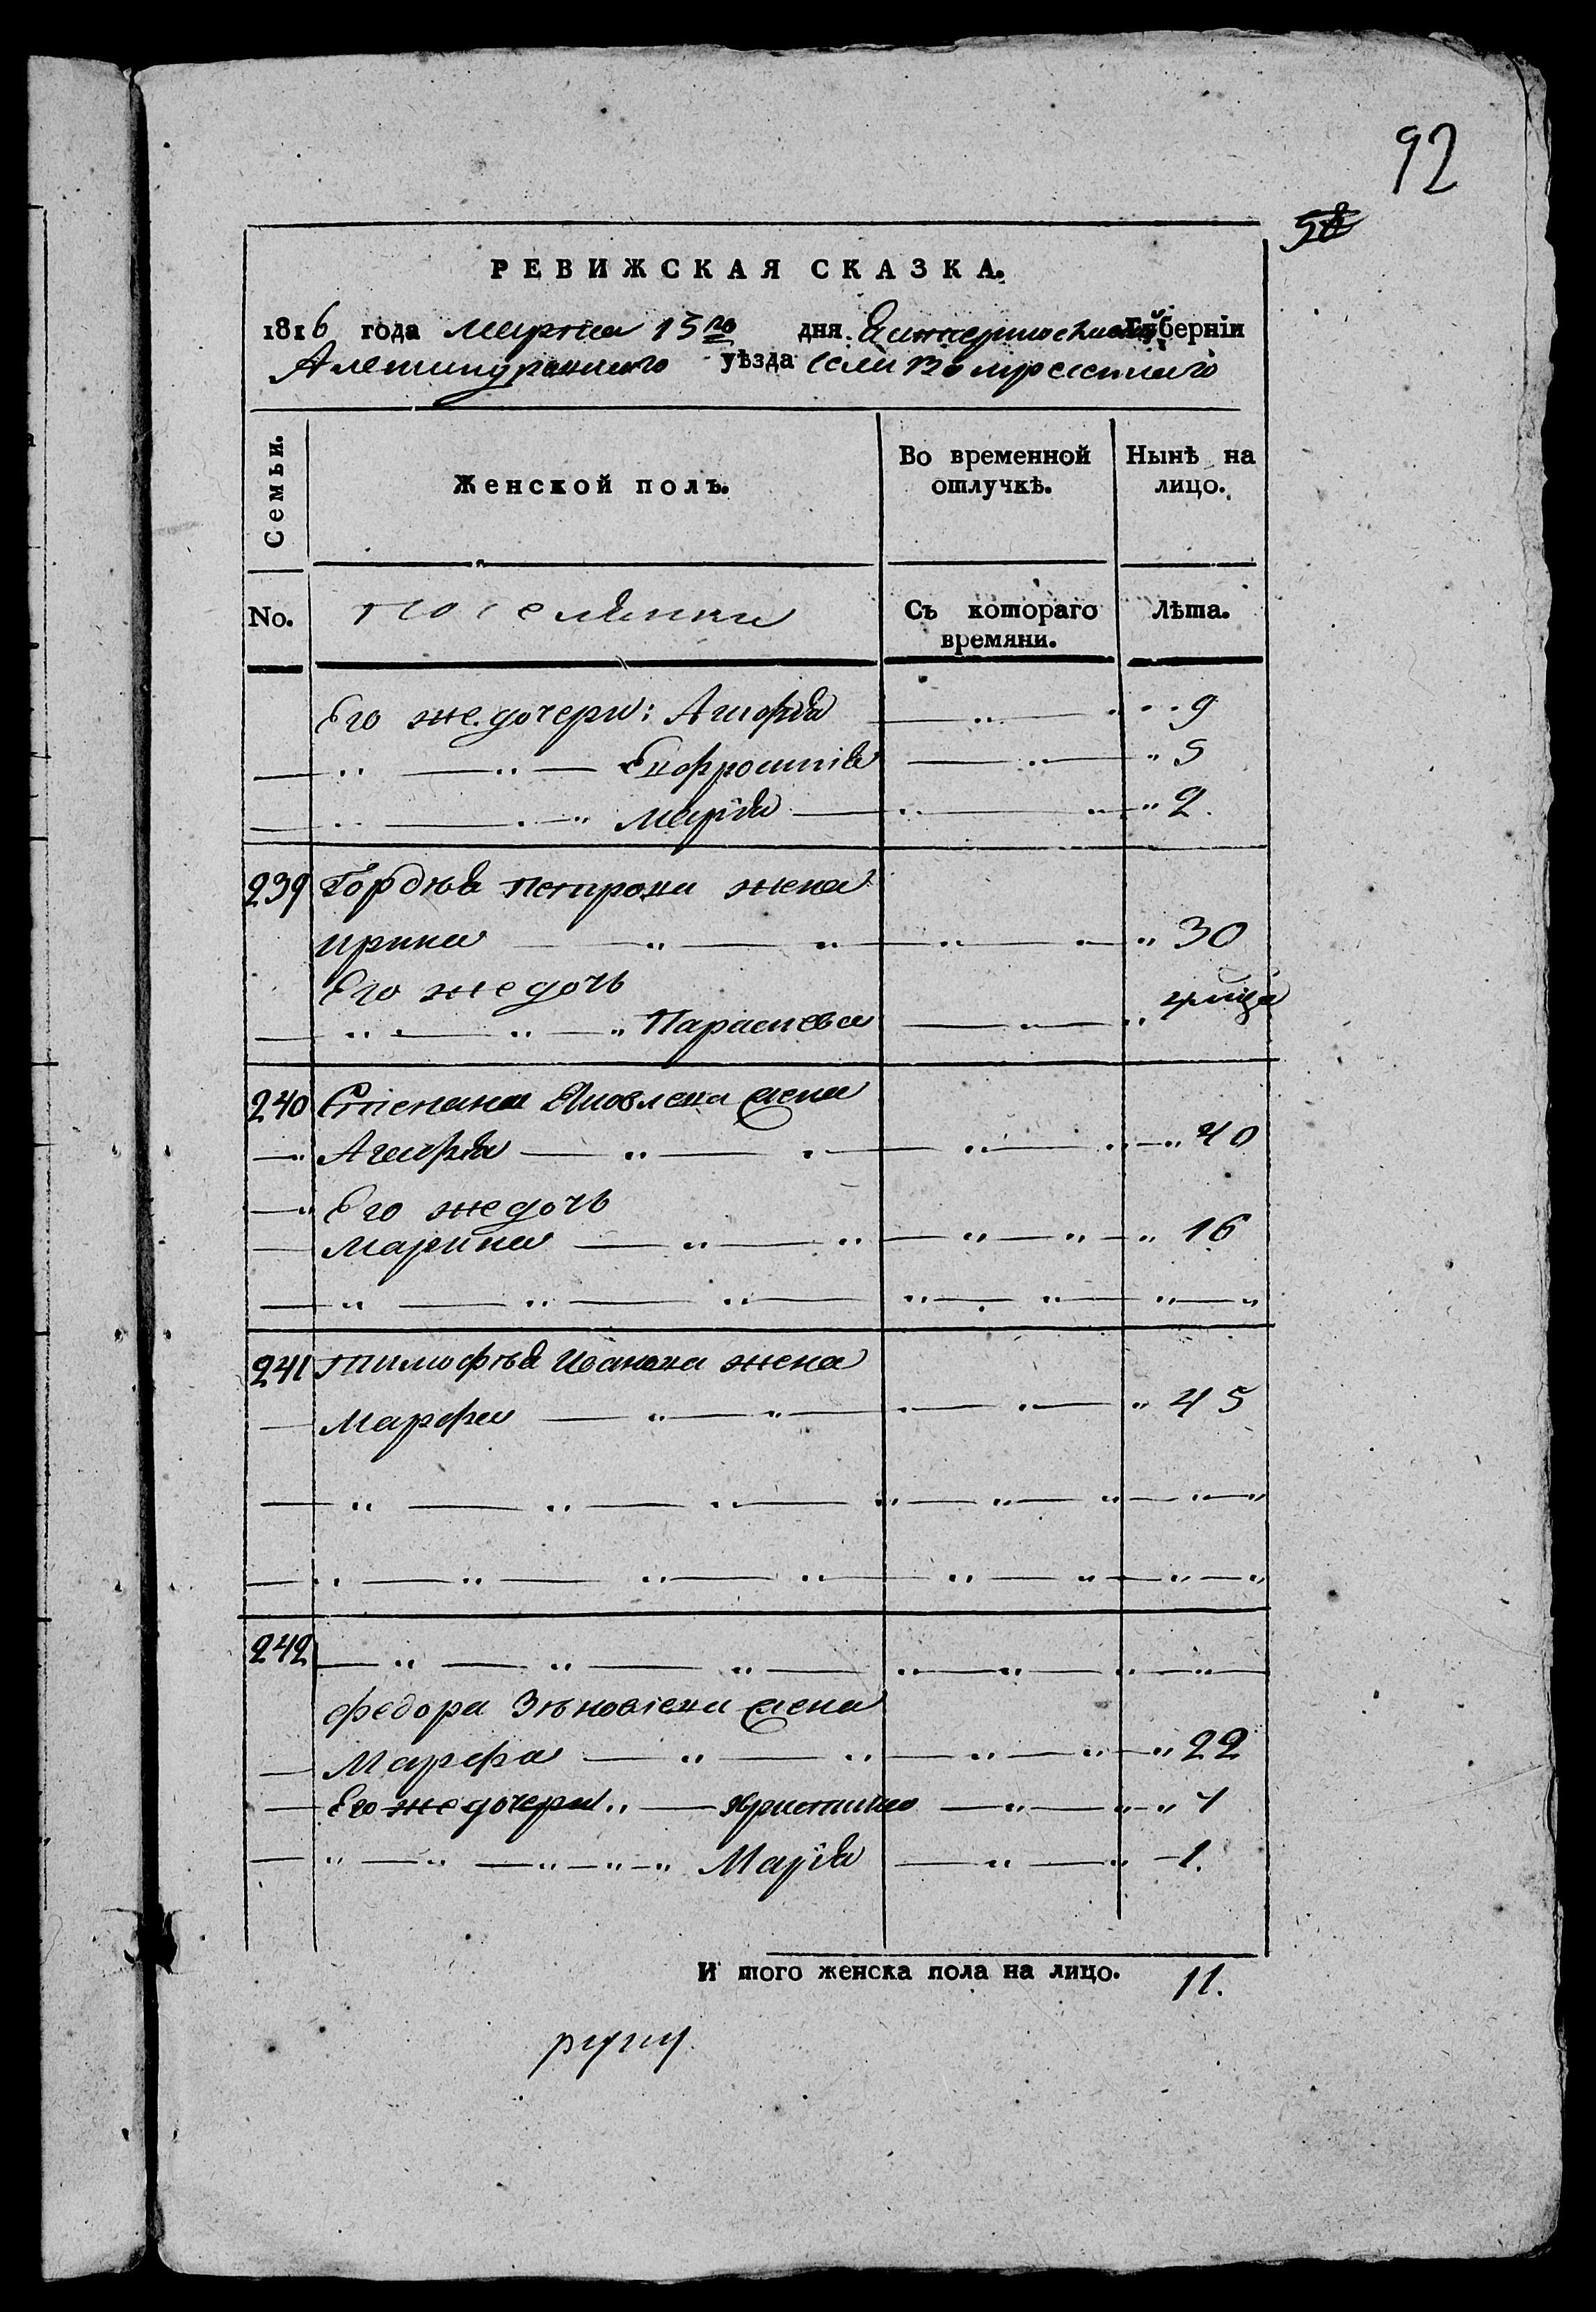 92
58
РЕВИЖСКАЯ СКАЗКА.
1816 года Марта 15го дня Екатеринославской Губерніи
Александровского уѣзда села Воскресенского
Семьи.
Женской полъ.
Во временной отлучкѣ.
Нынѣ на лицо.
No.
Поселянки
Съ котораго времяни.
Лѣта.
Его же дочери: Агафія 9
" " Евфросинія " 5
" " Марія " 2.
239 Гордѣя Петрова жена
Ирина " 30
Его же дочь
" " Параскева
240 Степана Яковлева жена
Агафія " 40
Его же дочь
Марина " 16
241 Тимофѣя Иванова жена
Марфа " 45
242
Федора Зѣновіева жена
Марфа " 22
Его же дочери " Христина " 4
" " Марія 1.
И того женска пола на лицо. 11.